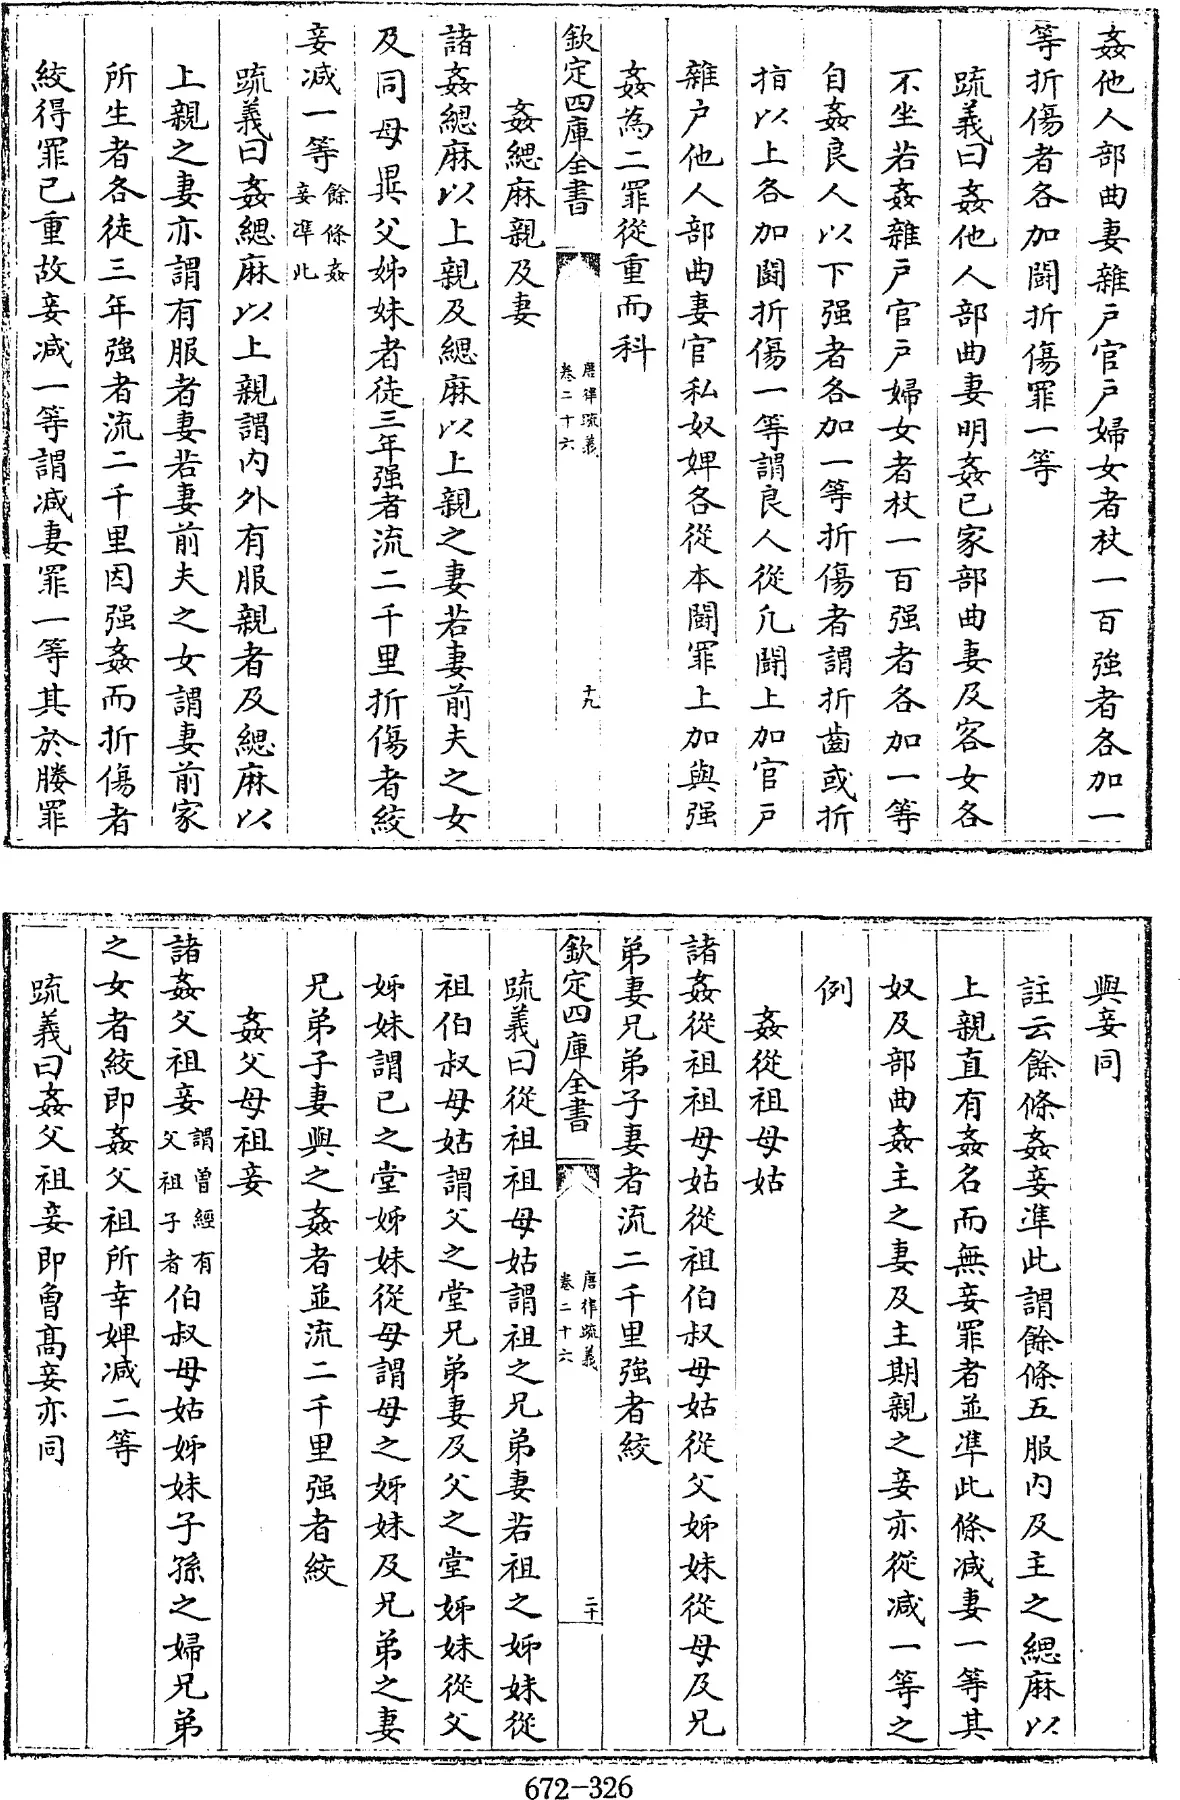 姦他人部曲妻雜戶官戶婦女者杖一百強者各加一
等折傷者各加鬬折傷罪一等
疏義曰姦他人部曲妻明姦已家部曲妻及客女各
不坐若姦雜戶官戶婦女者杖一百强者各加一等
自姦良人以下强者各加一等折傷者謂折齒或折
指以上各加鬬折傷一等謂良人從凡鬬上加官戶
雜戶他人部曲妻官私奴婢各從本鬬罪上加與强
姦為二罪從重而科
欽定四庫全書
唐律疏義
卷二十六
十九
姦緦麻親及妻
諸姦緦麻以上親及緦麻以上親之妻若妻前夫之女
及同母異父姊妹者徒三年强者流二千里折傷者絞
妾減一等餘條姦
妾準此
疏義曰姦緦麻以上親謂内外有服親者及緦麻以
上親之妻亦謂有服者妻若妻前夫之女謂妻前家
所生者各徒三年強者流二千里因强姦而折傷者
絞得罪已重故妾減一等謂減妻罪一等其於媵罪
與妾同
註云餘條姦妾準此謂餘條五服内及主之緦麻以
上親直有姦名而無妾罪者並準此條減妻一等其
奴及部曲姦主之妻及主期親之妾亦從減一等之
例
姦從祖母姑
諸姦從祖祖母姑從祖伯叔母姑從父姊妹從母及兄
弟妻兄弟子妻者流二千里強者絞
欽定四庫全書
唐律疏義
卷二十六
二十
疏義曰從祖祖母姑謂祖之兄弟妻若祖之姊妹從
祖伯叔母姑謂父之堂兄弟妻及父之堂姊妹從父
姊妹謂已之堂姊妹從母謂母之姊妹及兄弟之妻
兄弟子妻與之姦者並流二千里强者絞
姦父母祖妾
諸姦父祖妾謂曽經有
父祖子者伯叔母姑姊妹子孫之婦兄弟
之女者絞即姦父祖所幸婢減二等
疏義曰姦父祖妾即曽高妾亦同
672-326